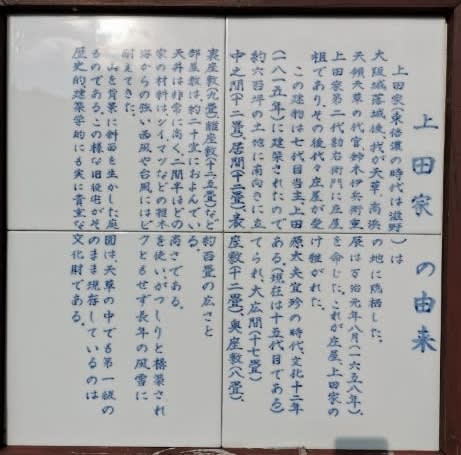 上田家の由来
上田家(東信濃の時代は滋野)は
大阪城落城後、我が天草、高浜の地に隠栖した。
天領天草の代官鈴木伊兵衛重辰は万治元年八月(一六五八年)、
上田家第二代勘右衛門に庄屋を命じた。これが庄屋、上田家の
祖であり、その後代々庄屋が受け継がれた。
この建物は七代目当主、上田源太夫宜珍の時代、文化十二年
(一八一五年)に建築されたのである。(現在は十五代目である)
約六百坪の土地に南向きに立てられ、大広間(十七畳)
中之間(十二畳)、居間(十二畳)、表座敷(十二畳)、奥座敷(八畳)、
裏座敷(九畳)、離座敷(十二・五畳)など約百畳の広さと
部屋数は約二十室におよんでいる。
天井は非常に高く、二間半ほどの高さである。
家の材料は、シイ、マツなどの雑木を使い、がっしりと構築され
海からの強い西風や台風にはビクともせず長年の風雪に
耐えてきた。
山を背景に斜面を生かした庭園は、天草の中でも第一級の
ものである。この様な旧役宅がそのまま現存しているのは
歴史的建築学的にも実に貴重な文化財である。